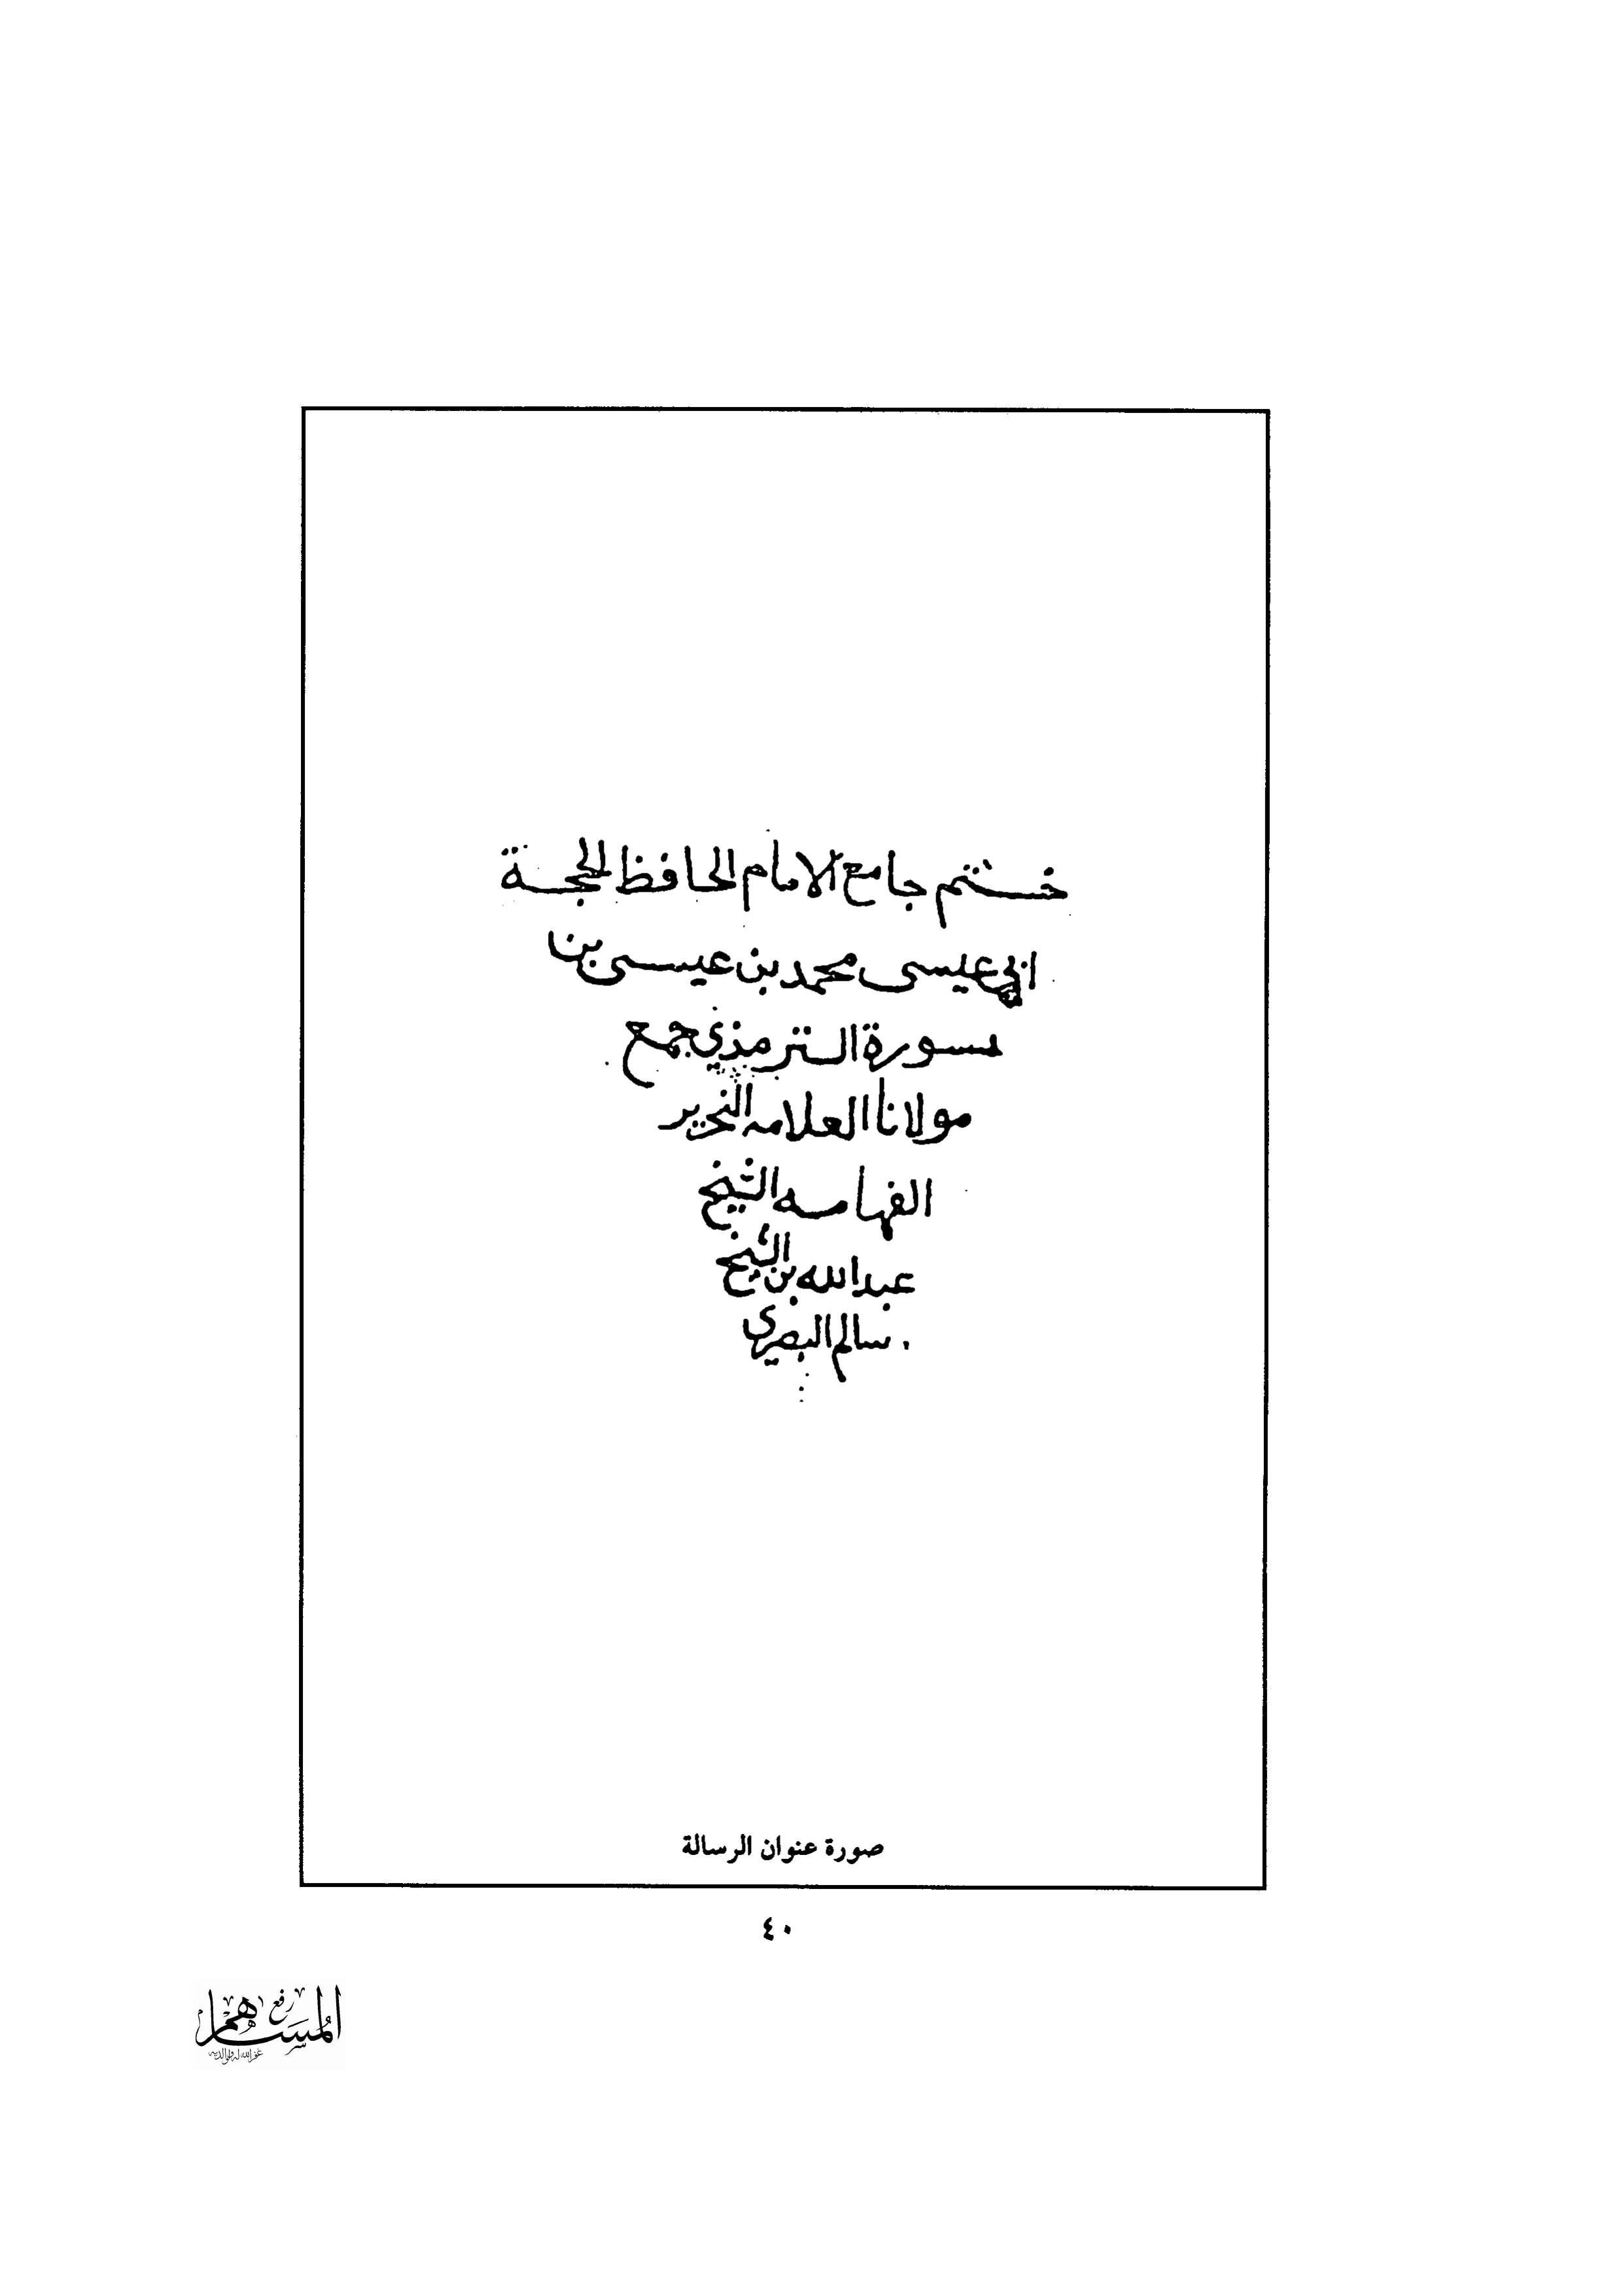 ختم جامع الامام الحافظ الحجة
ابي عيسى محمد بن عيسى بن
سورة الترمذي جمع
مولانا العلامه النحرير
الفهامه الشيخ
عبدالله بن الشيخ
سالم البصري
صورة عنوان الرسالة
٤٠
رفع
المساهم
غفر الله له ولوالديه